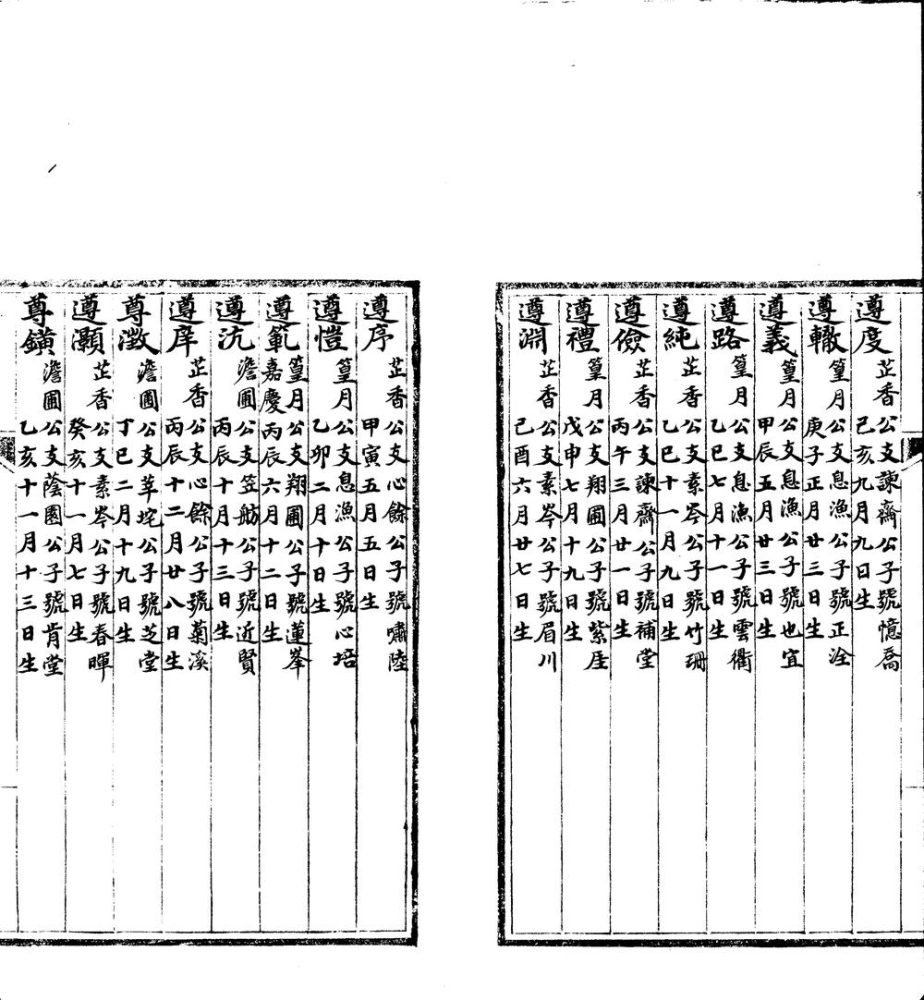 遵度 芷香公支諫齋公子號憶喬
己亥九月九日生
遵轍 篁月公支息漁公子號正淦
庚子正月廿三日生
遵義 篁月公支息漁公子號也宜
甲辰五月廿三日生
遵路 篁月公支息漁公子號雲衢
乙巳七月十一日生
遵純 芷香公支素岑公子號竹珊
乙巳十一月九日生
遵儉 芷香公支諫齋公子號補堂
丙午三月廿一日生
遵禮 篁月公支翔圃公子號紫厓
戊申七月十九日生
遵淵 芷香公支素岑公子號眉川
己酉六月廿七日生
遵序 芷香公支心餘公子號嘯陸
甲寅五月五日生
遵愷 篁月公支息漁公子號心培
乙卯二月十日生
遵範 篁月公支翔圃公子號蓮峯
嘉慶丙辰六月十二日生
遵沆 澹圃公支笠舫公子號近賢
丙辰十月十三日生
遵庠 芷香公支心餘公子號菊溪
丙辰十二月廿八日生
尊激 澹圃公支葦坨公子號芝堂
丁巳二月十九日生
遵灝 芷香公支素岑公子號春暉
癸亥十一月七日生
尊鐄 澹圃公支蔭園公子號肯堂
乙亥十一月十三日生